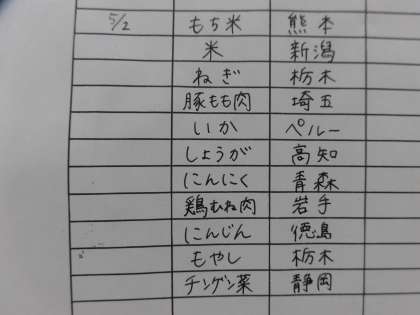 5/2 もち米 熊本
米 新潟
ねぎ 栃木
豚もも肉 埼玉
いか ペルー
しょうが 高知
にんにく 青森
鶏むね肉 岩手
にんじん 徳島
もやし 栃木
チンゲン菜 静岡